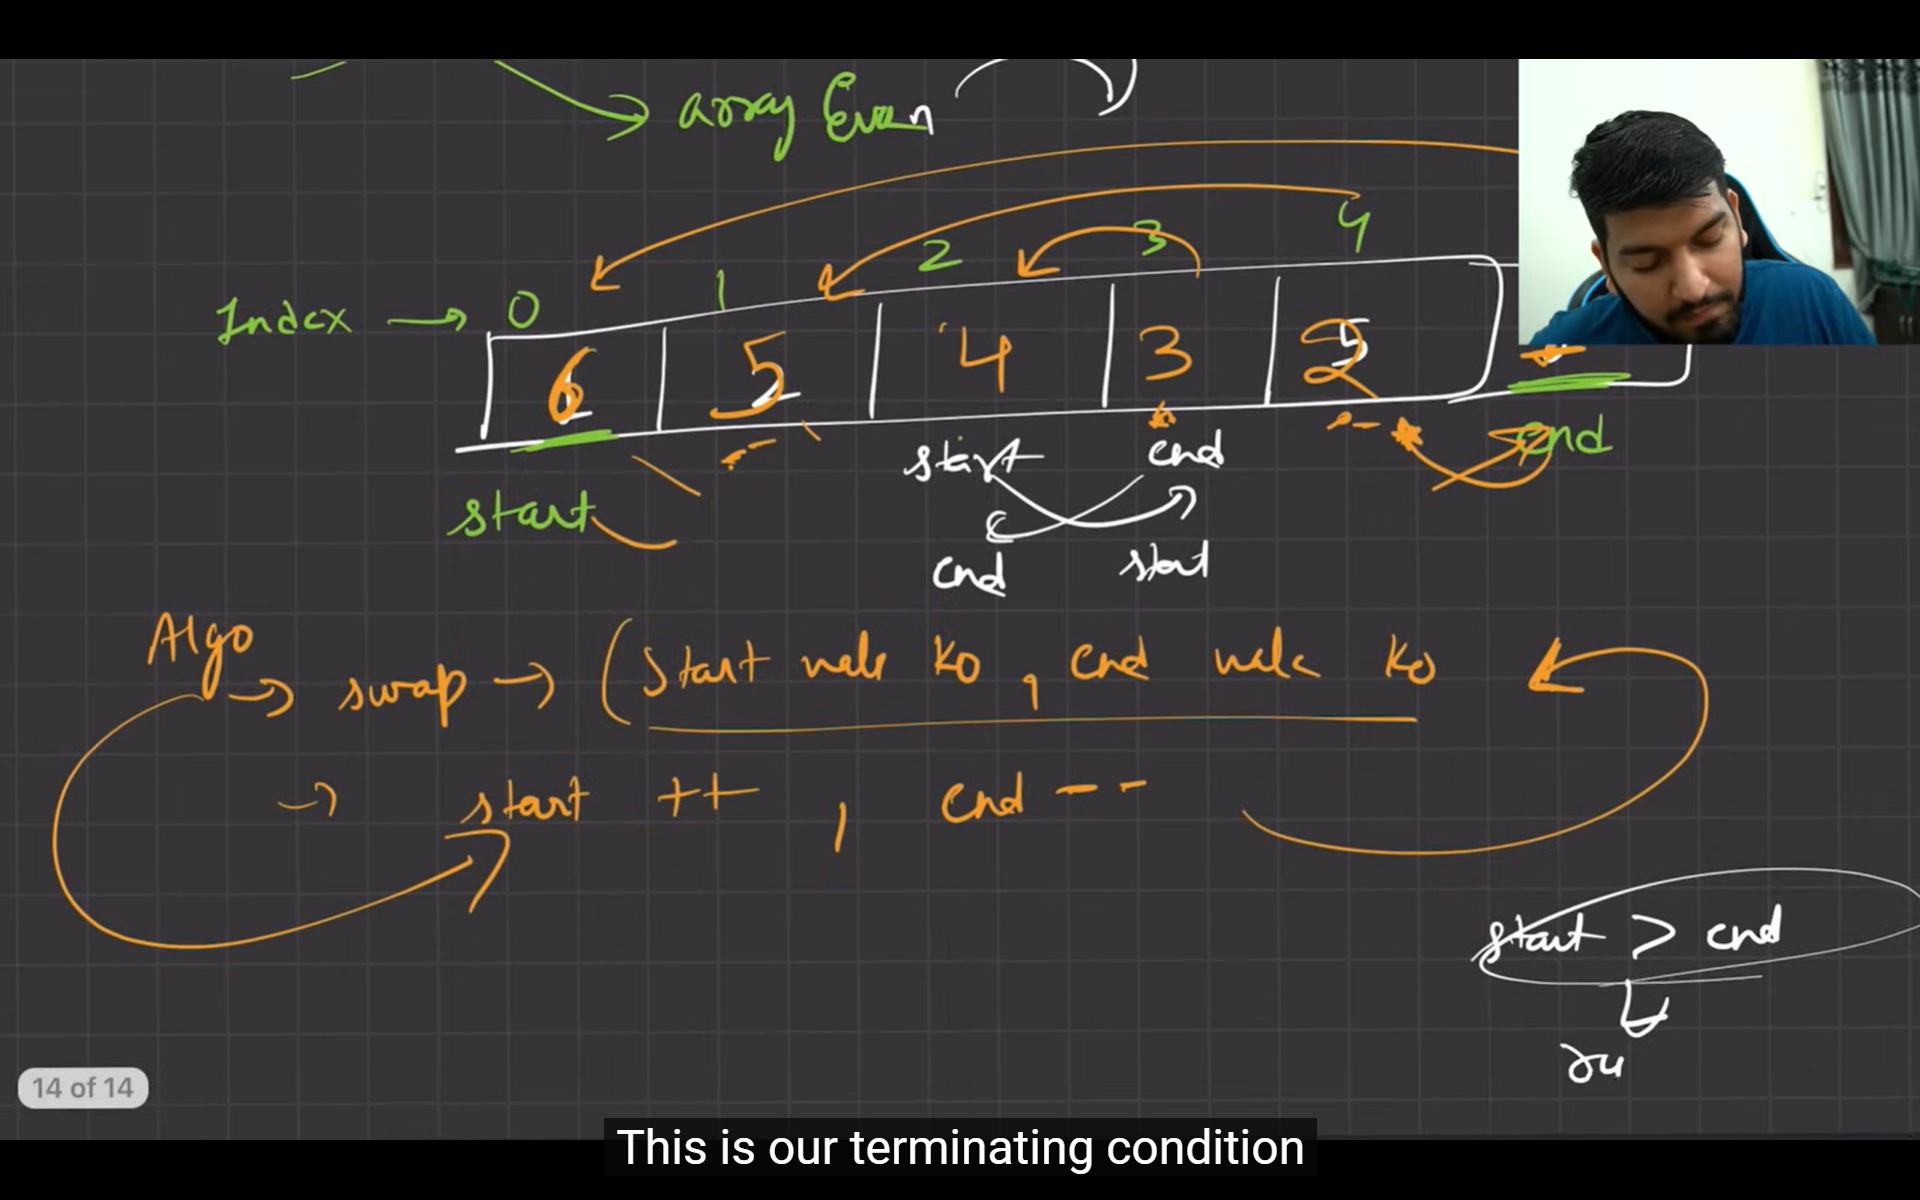 array Even
0 1 2 3 4
Index →
6 5 4 3 2
start end end
start
end start
Algo
→ swap → (start wale ko, end wale ko
→ start ++ , end --
start > end
14 of 14
This is our terminating condition